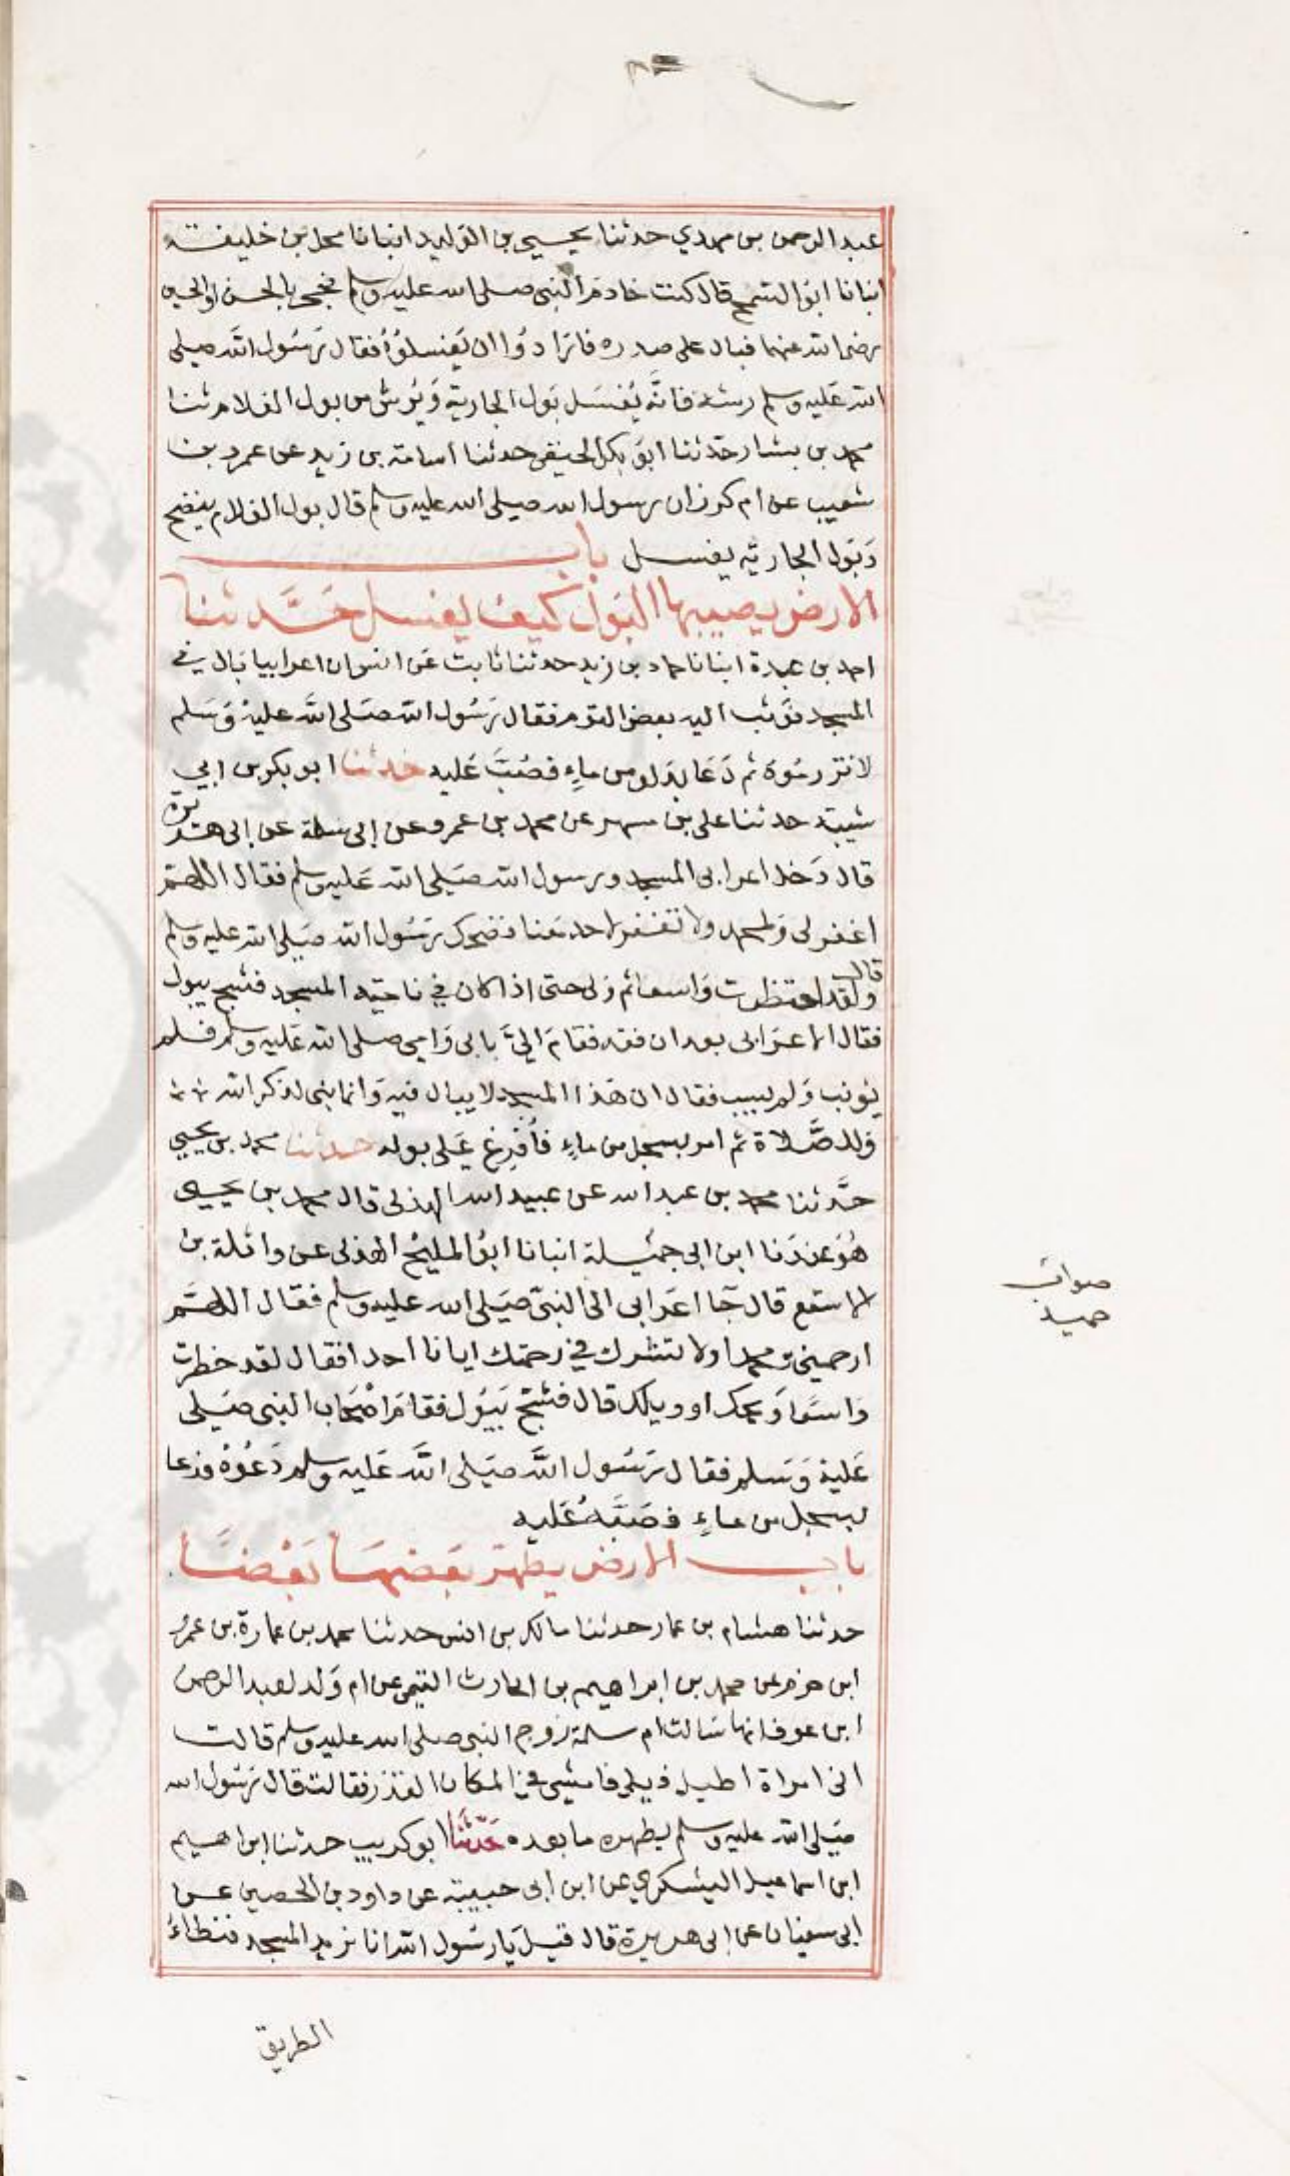 عبد الرحمن بن مهدي حدثنا يحيى بن الوليد انبانا محل بن خليفة
انبانا ابو السمح قال كنت خادم النبي صلى الله عليه وسلم فجئ بالحسن او الحسين
رضى الله عنهما فبال على صدره فارادوا ان يغسلوا فقال رسول الله صلى
الله عليه وسلم رشه فانه يغسل بول الجارية ويرش من بول الغلام ثنا
محمد بن بشار حدثنا ابو بكر الحنفى حدثنا اسامة بن زيد عن عمرو بن
شعيب عن ام كرز ان رسول الله صلى الله عليه وسلم قال بول الغلام ينضح
وبول الجارية يغسل باب
الارض يصيبها البول كيف يغسل حدثنا
احمد بن عبدة انبانا حماد بن زيد حدثنا ثابت عن انس ان اعرابيا بال في
المسجد فوثب اليه بعض القوم فقال رسول الله صلى الله عليه وسلم
لا تزرموه ثم دعا بدلو من ماء فصب عليه حدثنا ابو بكر بن ابي
شيبة حدثنا على بن مسهر عن محمد بن عمرو عن ابى سلمة عن ابى هريرة
قال دخل اعرابى المسجد ورسول الله صلى الله عليه وسلم فقال اللهم
اغفر لى ولمحمد ولا تغفر لاحد معنا فضحك رسول الله صلى الله عليه وسلم
قال
ولقد احتظرت واسعا ثم ولى حتى اذا كان في ناحية المسجد فشج يبول
فقال الاعرابى بعد ان فقه فقام الي بابى وامى صلى الله عليه وسلم فلم
يؤنب ولم يسب فقال ان هذا المسجد لا يبال فيه وانما بنى لذكر الله
وللصلاة ثم امر بسجل من ماء فأفرغ على بوله حدثنا محمد بن يحيى
حدثنا محمد بن عبد الله عن عبيد الله الهذلى قال محمد بن يحيى
هو عندنا ابن ابى جميلة انبانا ابو المليح الهذلى عن واثلة بن
الاسقع قال جا اعرابى الى النبى صلى الله عليه وسلم فقال اللهم
ارحمنى ومحمدا ولا تشرك في رحمتك ايانا احدا فقال لقد حظرت
واسعا ويحك او ويلك قال فشج يبول فقام اصحاب النبى صلى
عليه وسلم فقال رسول الله صلى الله عليه وسلم دعوه ودعا
بسجل من ماء فصبه عليه
باب الارض يطهر بعضها بعضا
حدثنا هشام بن عمار حدثنا مالك بن انس حدثنا محمد بن عمارة بن عمرو
ابن حزم عن محمد بن ابراهيم بن الحارث التيمى عن ام ولد لعبد الرحمن
ابن عوف انها سالت ام سلمة زوج النبى صلى الله عليه وسلم قالت
انى امراة اطيل ذيلى فامشى في المكان القذر فقالت قال رسول الله
صلى الله عليه وسلم يطهره ما بعده حدثنا ابو كريب حدثنا ابراهيم
ابن اسماعيل اليشكري عن ابن ابى حبيبة عن داود بن الحصين عن
ابى سفيان عن ابى هريرة قال قيل يا رسول الله انا نريد المسجد فنطاء
صوابه
حميد
الطريق